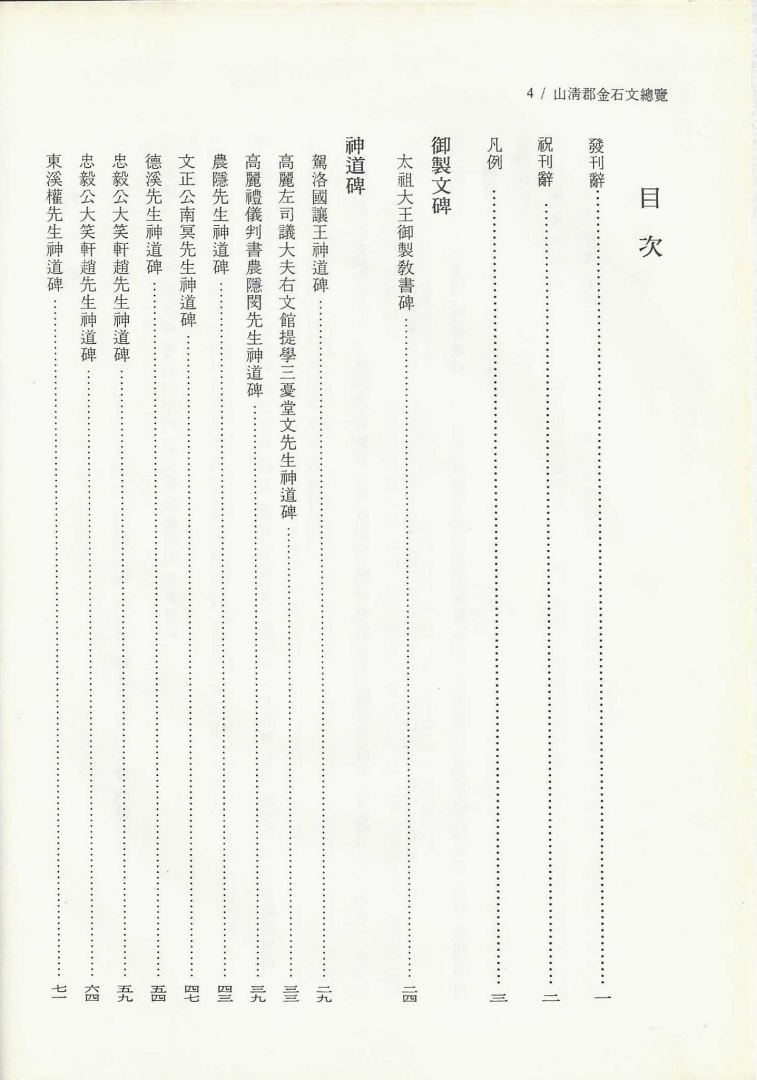 4 / 山淸郡金石文總覽
目次
發刊辭 一
祝刊辭 二
凡例 三
御製文碑
太祖大王御製敎書碑 二四
神道碑
駕洛國讓王神道碑 二九
高麗左司議大夫右文館提學三憂堂文先生神道碑 三三
高麗禮儀判書農隱閔先生神道碑 三九
農隱先生神道碑 四三
文正公南冥先生神道碑 四七
德溪先生神道碑 五四
忠毅公大笑軒趙先生神道碑 五九
忠毅公大笑軒趙先生神道碑 六四
東溪權先生神道碑 七一